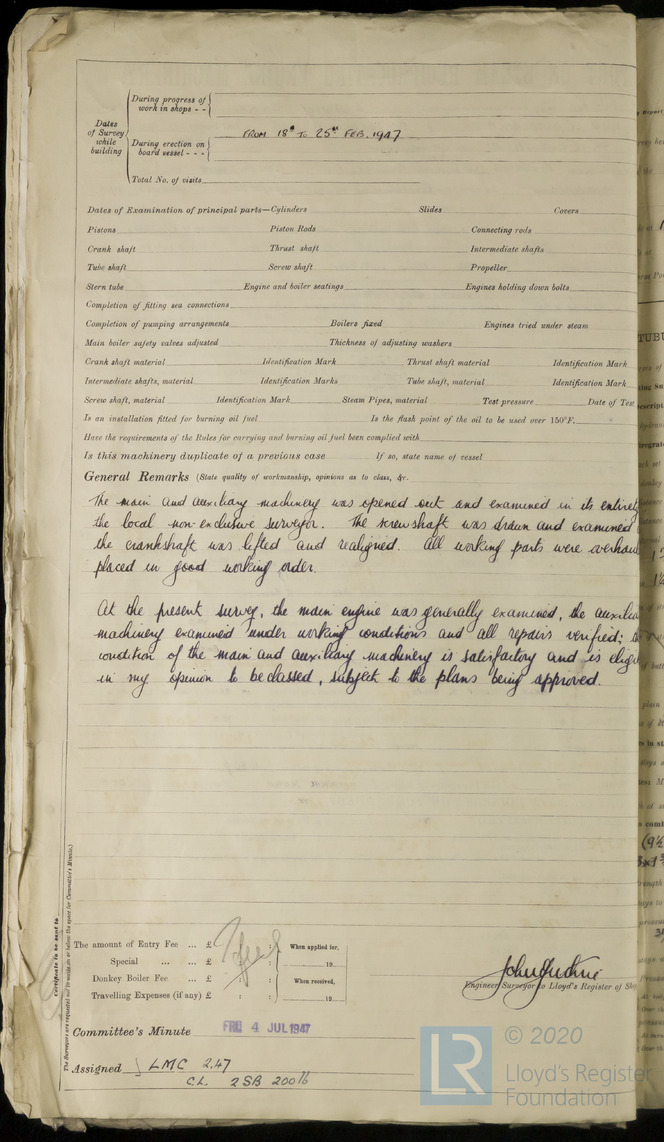 During progress of work in shops - -
Dates of Survey while building
During erection on board vessel - - -
FROM 18th TO 25th FEB. 1947
Total No. of visits
Dates of Examination of principal parts—Cylinders Slides Covers
Pistons Piston Rods Connecting rods
Crank shaft Thrust shaft Intermediate shafts
Tube shaft Screw shaft Propeller
Stern tube Engine and boiler seatings Engines holding down bolts
Completion of fitting sea connections
Completion of pumping arrangements Boilers fixed Engines tried under steam
Main boiler safety valves adjusted Thickness of adjusting washers
Crank shaft material Identification Mark Thrust shaft material Identification Mark
Intermediate shafts, material Identification Marks Tube shaft, material Identification Mark
Screw shaft, material Identification Mark Steam Pipes, material Test pressure Date of Test
Is an installation fitted for burning oil fuel Is the flash point of the oil to be used over 150°F.
Have the requirements of the Rules for carrying and burning oil fuel been complied with
Is this machinery duplicate of a previous case If so, state name of vessel
General Remarks (State quality of workmanship, opinions as to class, &c.
The main and auxiliary machinery was opened out and examined in its entirety
the local non-exclusive surveyor. The screwshaft was drawn and examined
the crankshaft was lifted and realigned. All working parts were overhau
placed in good working order.
At the present survey, the main engine was generally examined, the auxilia
machinery examined under working conditions and all repairs verified;
condition of the main and auxiliary machinery is satisfactory and is eligi
in my opinion to be classed, subject to the plans being approved.
Certificate to be sent to
The Surveyors are requested not to write on or below the space for Committee's Minute.)
The amount of Entry Fee ... £ : : When applied for,
Special ... ... £ : 19
Donkey Boiler Fee ... £ : When received,
Travelling Expenses (if any) £ : : 19
John Guthrie
Engineer Surveyor to Lloyd's Register of Sh
Committee's Minute FRI. 4 JUL 1947
Assigned LMC 2.47
C.L. 2SB 200 lb
LR
© 2020
Lloyd's Register
Foundation